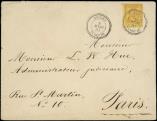 Monsieur
Monsieur L. W. Hue,
Administrateur judiciaire,
Rue St Martin,
No 10.
Paris.